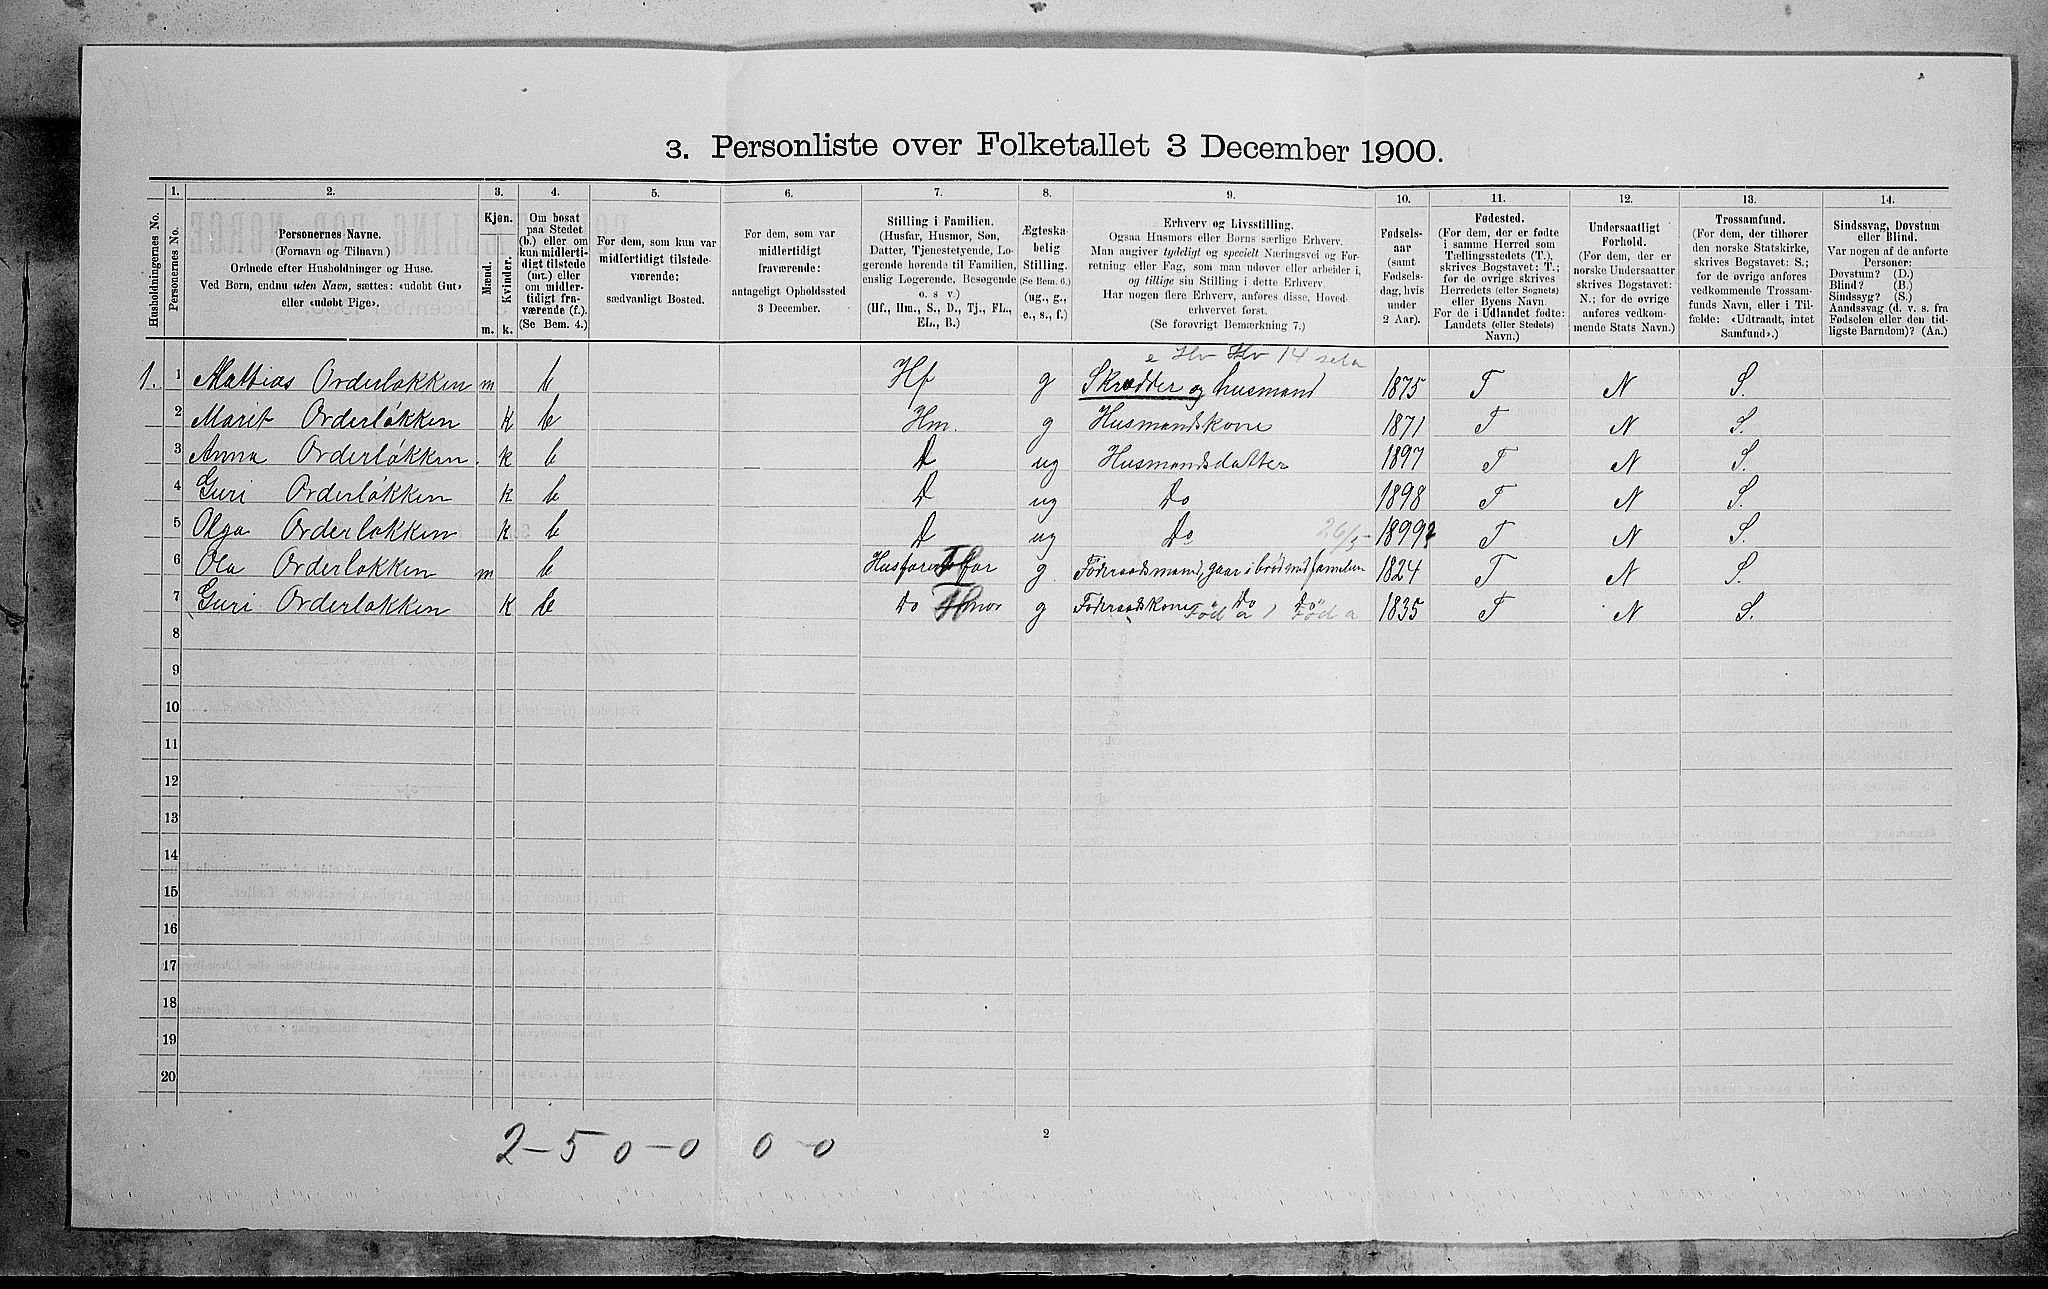 3. Personliste over Folketallet 3 December 1900.
Husholdningernes No.
1. Personernes No.
2. Personernes Navne. (Fornavn og Tilnavn) Ordnede efter Husholdninger og Huse. Ved Børn, endnu uden Navn, sættes: «udøbt Gut» eller «udøbt Pige».
3. Kjøn. Mænd. m. Kvinder. k.
4. Om bosat paa Stedet (b.) eller om kun midlertidigt tilstede (mt.) eller om midlertidigt fraværende (f.). (Se Bem. 4.)
5. For dem, som kun var midlertidigt tilstedeværende: sædvanligt Bosted.
6. For dem, som var midlertidigt fraværende: antageligt Opholdssted 3 December.
7. Stilling i Familien. (Husfar, Husmor, Søn, Datter, Tjenestetyende, Logerende hørende til Familien, enslig Logerende, Besøgende o. s v.) (Hf., Hm., S., D., Tj., FL., EL., B.)
8. Ægteskabelig Stilling. (Se Bem. 6.) (ug., g., e., s., f.)
9. Erhverv og Livsstilling. Ogsaa Husmors eller Børns særlige Erhverv. Man angiver tydeligt og specielt Næringsvei og Forretning eller Fag, som man udøver eller arbeider i, og tillige sin Stilling i dette Erhverv. Har nogen flere Erhverv, anføres disse, Hovederhvervet først. (Se forøvrigt Bemærkning 7.)
10. Fødselsaar (samt Fødselsdag, hvis under 2 Aar).
11. Fødested. (For dem, der er fødte i samme Herred som Tællingsstedets (T.), skrives Bogstavet: T.; for de øvrige skrives Herredets (eller Sognets) eller Byens Navn. For de i Udlandet fødte: Landets (eller Stedets) Navn.)
12. Undersaatligt Forhold. (For dem, der er norske Undersaatter skrives Bogstavet: N.; for de øvrige anføres vedkommende Stats Navn.)
13. Trossamfund. (For dem, der tilhører den norske Statskirke, skrives Bogstavet: S.; for de øvrige anføres vedkommende Trossamfunds Navn, eller i Tilfælde: «Udtraadt, intet Samfund».)
14. Sindssvag, Døvstum eller Blind. Var nogen af de anførte Personer: Døvstum? (D.) Blind? (B.) Sindssyg? (S.) Aandssvag (d. v. s. fra Fødselen eller den tidligste Barndom)? (Aa.)
e Hv Hv 14
1. 1 Mathias Orderløkken m b Hf g Skrædder og husmand 1875 T N S.
2 Marit Orderløkken k b Hm. g Husmandskone 1871 T N S.
3 Anna Orderløkken. k b D ug Husmandsdatter 1897 T N S.
4 Guri Orderløkken k b D ug Do 1898 T N S.
5 Olga Orderløkken k b D ug Do 26/5- 1899 T N S.
6 Ola Orderløkken m b far g. Føderaadsmand, gaar i brød med familien 1824 T N S.
7 Guri Orderløkken k b Do mor g Føderaadskone Do Do 1835 T N S.
Fød a Fød a
8
9
10
11
12
13
14
15
16
17
18
19
20
2
2-5 0-0 0-0